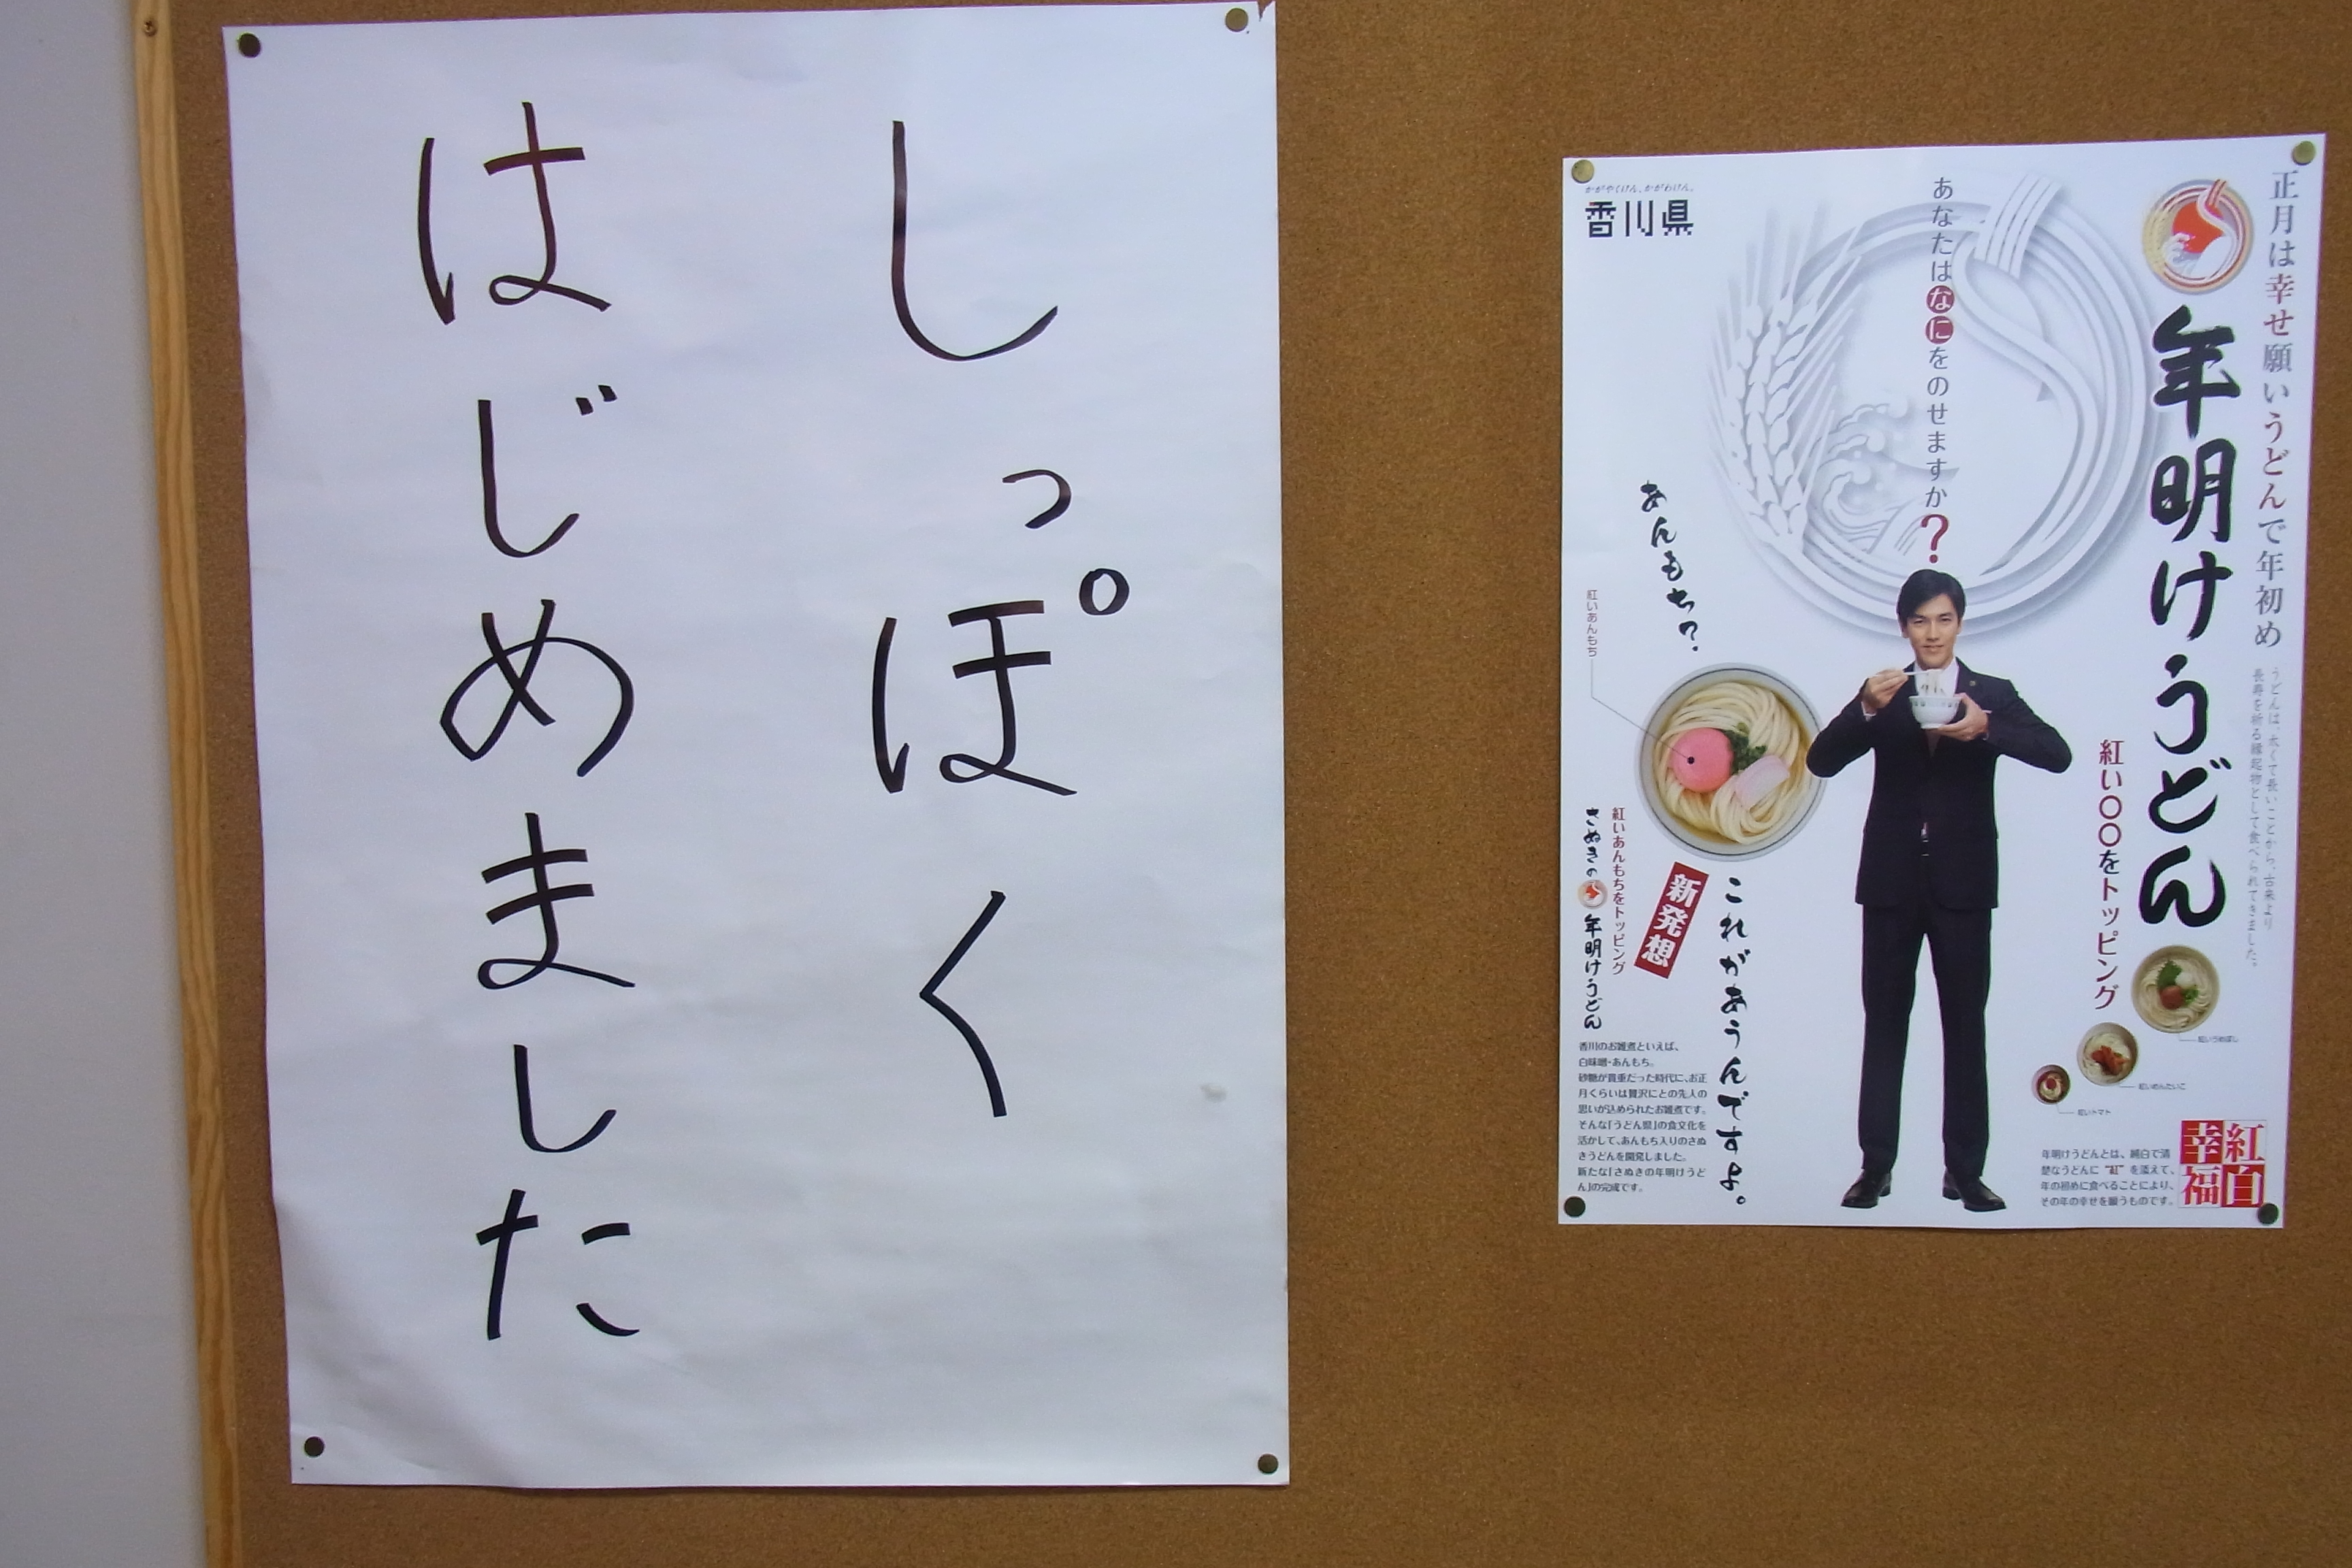 しっぽく
はじめました
正月は幸せ願いうどんで年初め
うどんは、太くて長いことから、古来より
長寿を祈る縁起物として食べられてきました。
年明けうどん
紅い〇〇をトッピング
紅いうめぼし
紅いめんたいこ
紅いトマト
年明けうどんとは、純白で清
楚なうどんに“紅”を添えて、
年の初めに食べることにより、
その年の幸せを願うものです。
紅白
幸福
あなたはなにをのせますか?
かがやくけん、かがわけん。
香川県
あんもち?
紅いあんもち
これがあうんですよ。
新発想
紅いあんもちをトッピング
さぬきの年明けうどん
香川のお雑煮といえば、
白味噌・あんもち。
砂糖が貴重だった時代に、お正
月くらいは贅沢にとの先人の
思いが込められたお雑煮です。
そんな「うどん県」の食文化を
活かして、あんもち入りのさぬ
きうどんを開発しました。
新たな「さぬきの年明けうど
ん」の完成です。